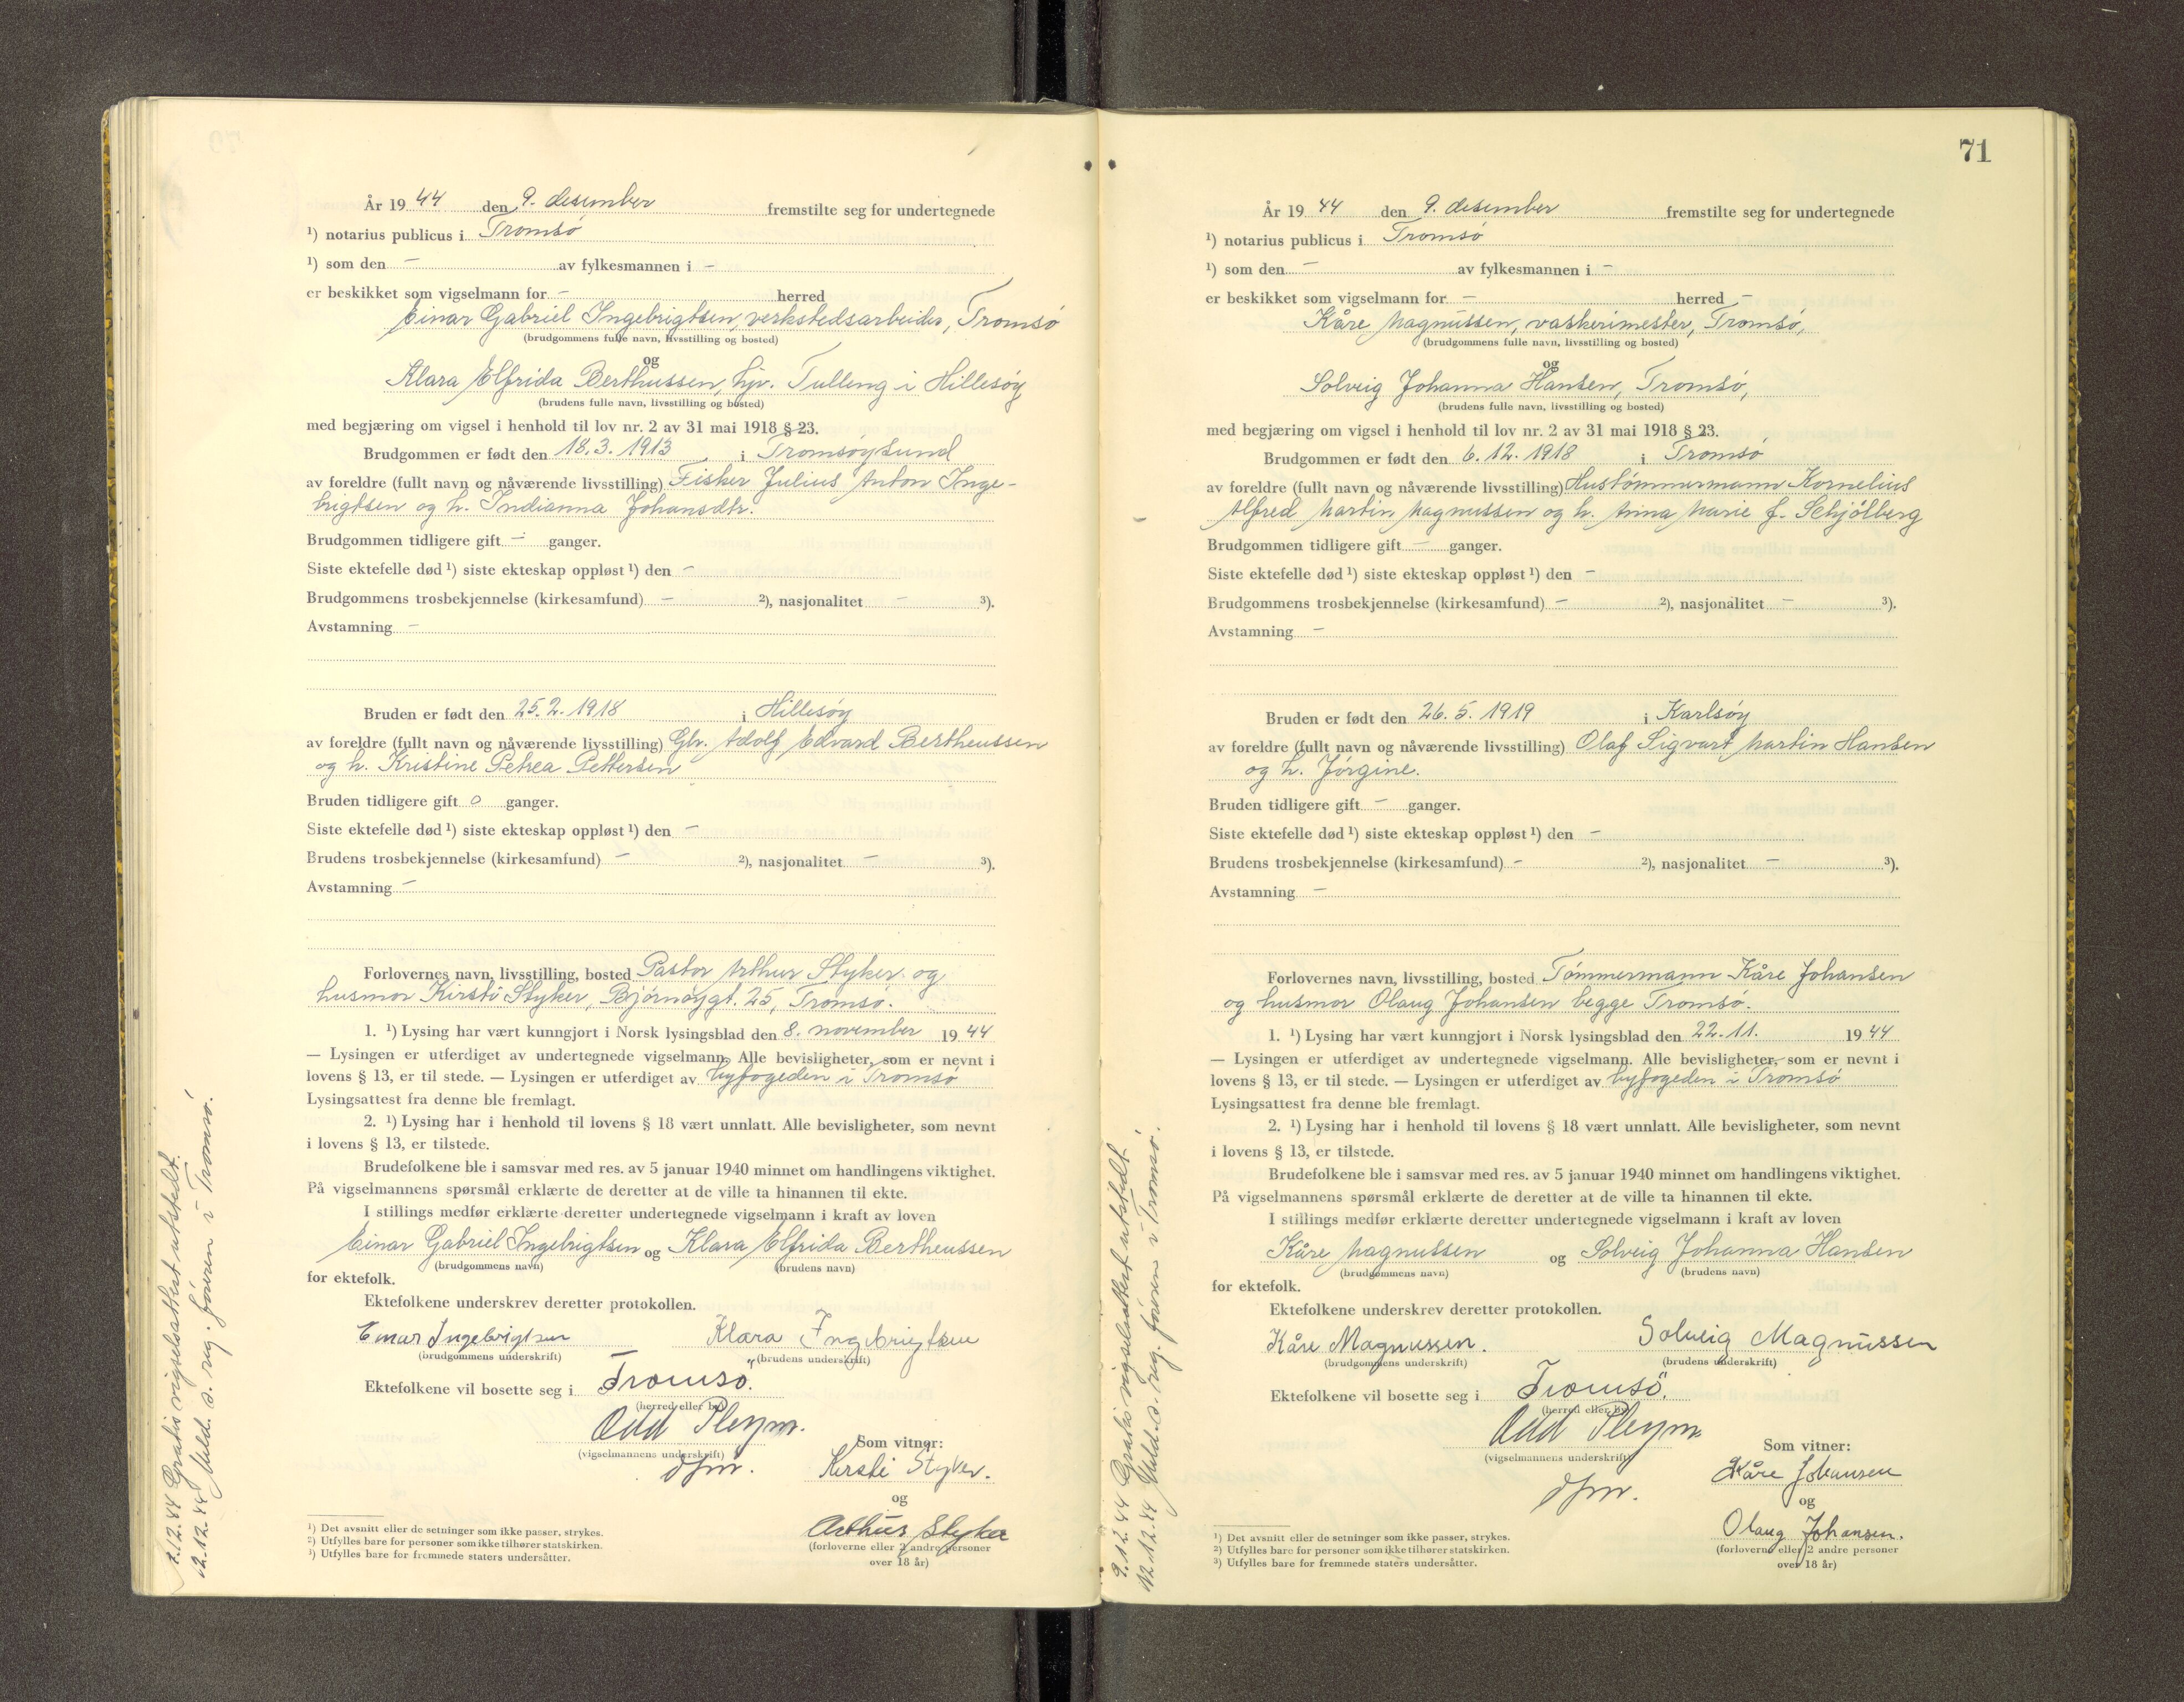 År 1944 den 9. desember fremstilte seg for undertegnede
¹) notarius publicus i Tromsø
¹) som den – av fylkesmannen i –
er beskikket som vigselmann for – herred
Einar Gabriel Ingebrigtsen, verkstedsarbeider, Tromsø
(brudgommens fulle navn, livsstilling og bosted)
og
Klara Elfrida Berthussen, hjv. Tulleng i Hillesøy
(brudens fulle navn, livsstilling og bosted)
med begjæring om vigsel i henhold til lov nr. 2 av 31 mai 1918 § 23.
Brudgommen er født den 18.3.1913 i Tromsøysund
av foreldre (fullt navn og nåværende livsstilling) Fisker Julius Anton Inge-
brigtsen og h. Indianna Johansdtr.
Brudgommen tidligere gift – ganger.
Siste ektefelle død ¹) siste ekteskap oppløst ¹) den –
Brudgommens trosbekjennelse (kirkesamfund) – ²), nasjonalitet – ³).
Avstamning –
Bruden er født den 25.2.1918 i Hillesøy
av foreldre (fullt navn og nåværende livsstilling) Gbr. Adolf Edvard Bertheussen
og h. Kristine Petrea Pettersen
Bruden tidligere gift 0 ganger.
Siste ektefelle død ¹) siste ekteskap oppløst ¹) den –
Brudens trosbekjennelse (kirkesamfund) – ²), nasjonalitet – ³).
Avstamning –
Forlovernes navn, livsstilling, bosted Pastor Arthur Styker og
husmor Kirsti Styker, Bjørnøygt. 25, Tromsø.
1. ¹) Lysing har vært kunngjort i Norsk lysingsblad den 8. november 1944
— Lysingen er utferdiget av undertegnede vigselmann. Alle bevisligheter, som er nevnt i
lovens § 13, er til stede. — Lysingen er utferdiget av byfogeden i Tromsø
Lysingsattest fra denne ble fremlagt.
2. ¹) Lysing har i henhold til lovens § 18 vært unnlatt. Alle bevisligheter, som nevnt
i lovens § 13, er tilstede.
Brudefolkene ble i samsvar med res. av 5 januar 1940 minnet om handlingens viktighet.
På vigselmannens spørsmål erklærte de deretter at de ville ta hinannen til ekte.
I stillings medfør erklærte deretter undertegnede vigselmann i kraft av loven
Einar Gabriel Ingebrigtsen og Klara Elfrida Bertheussen
(brudgommens navn) (brudens navn)
for ektefolk.
Ektefolkene underskrev deretter protokollen.
Einar Ingebrigtsen Klara Ingebrigtsen
(brudgommens underskrift) (brudens underskrift)
Ektefolkene vil bosette seg i Tromsø.
(herred eller by)
Odd Pleym.
(vigselmannens underskrift)
dfm.
Som vitner:
Kirsti Styker.
og
Arthur Styker
(forloverne eller 2 andre personer
over 18 år)
¹) Det avsnitt eller de setninger som ikke passer, strykes.
²) Utfylles bare for personer som ikke tilhører statskirken.
³) Utfylles bare for fremmede staters undersåtter.
9.12.44 Gratis vigselsattest utstedt.
12.12.44 Meld. s. reg. føreren i Tromsø.
71
År 1944 den 9. desember fremstilte seg for undertegnede
¹) notarius publicus i Tromsø
¹) som den – av fylkesmannen i –
er beskikket som vigselmann for – herred –
Kåre Magnussen, vaskerimester, Tromsø,
(brudgommens fulle navn, livsstilling og bosted)
og
Solveig Johanna Hansen, Tromsø,
(brudens fulle navn, livsstilling og bosted)
med begjæring om vigsel i henhold til lov nr. 2 av 31 mai 1918 § 23.
Brudgommen er født den 6.12.1918 i Tromsø
av foreldre (fullt navn og nåværende livsstilling) Hustømmermann Kornelius
Alfred Martin Magnussen og h. Anna Marie f. Schjølberg
Brudgommen tidligere gift – ganger.
Siste ektefelle død ¹) siste ekteskap oppløst ¹) den –
Brudgommens trosbekjennelse (kirkesamfund) – ²), nasjonalitet – ³).
Avstamning –
Bruden er født den 26.5.1919 i Karlsøy
av foreldre (fullt navn og nåværende livsstilling) Olaf Sigvart Martin Hansen
og h. Jørgine.
Bruden tidligere gift – ganger.
Siste ektefelle død ¹) siste ekteskap oppløst ¹) den –
Brudens trosbekjennelse (kirkesamfund) – ²), nasjonalitet – ³).
Avstamning –
Forlovernes navn, livsstilling, bosted Tømmermann Kåre Johansen
og husmor Olaug Johansen begge Tromsø.
1. ¹) Lysing har vært kunngjort i Norsk lysingsblad den 22.11. 1944
— Lysingen er utferdiget av undertegnede vigselmann. Alle bevisligheter, som er nevnt i
lovens § 13, er til stede. — Lysingen er utferdiget av byfogeden i Tromsø
Lysingsattest fra denne ble fremlagt.
2. ¹) Lysing har i henhold til lovens § 18 vært unnlatt. Alle bevisligheter, som nevnt
i lovens § 13, er tilstede.
Brudefolkene ble i samsvar med res. av 5 januar 1940 minnet om handlingens viktighet.
På vigselmannens spørsmål erklærte de deretter at de ville ta hinannen til ekte.
I stillings medfør erklærte deretter undertegnede vigselmann i kraft av loven
Kåre Magnussen og Solveig Johanna Hansen
(brudgommens navn) (brudens navn)
for ektefolk.
Ektefolkene underskrev deretter protokollen.
Kåre Magnussen. Solveig Magnussen
(brudgommens underskrift) (brudens underskrift)
Ektefolkene vil bosette seg i Tromsø.
(herred eller by)
Odd Pleym
(vigselmannens underskrift)
dfm.
Som vitner:
Kåre Johansen
og
Olaug Johansen.
(forloverne eller 2 andre personer
over 18 år)
¹) Det avsnitt eller de setninger som ikke passer, strykes.
²) Utfylles bare for personer som ikke tilhører statskirken.
³) Utfylles bare for fremmede staters undersåtter.
9.12.44 Gratis vigselsattest utstedt.
12.12.44 Meld. s. reg. føreren i Tromsø.